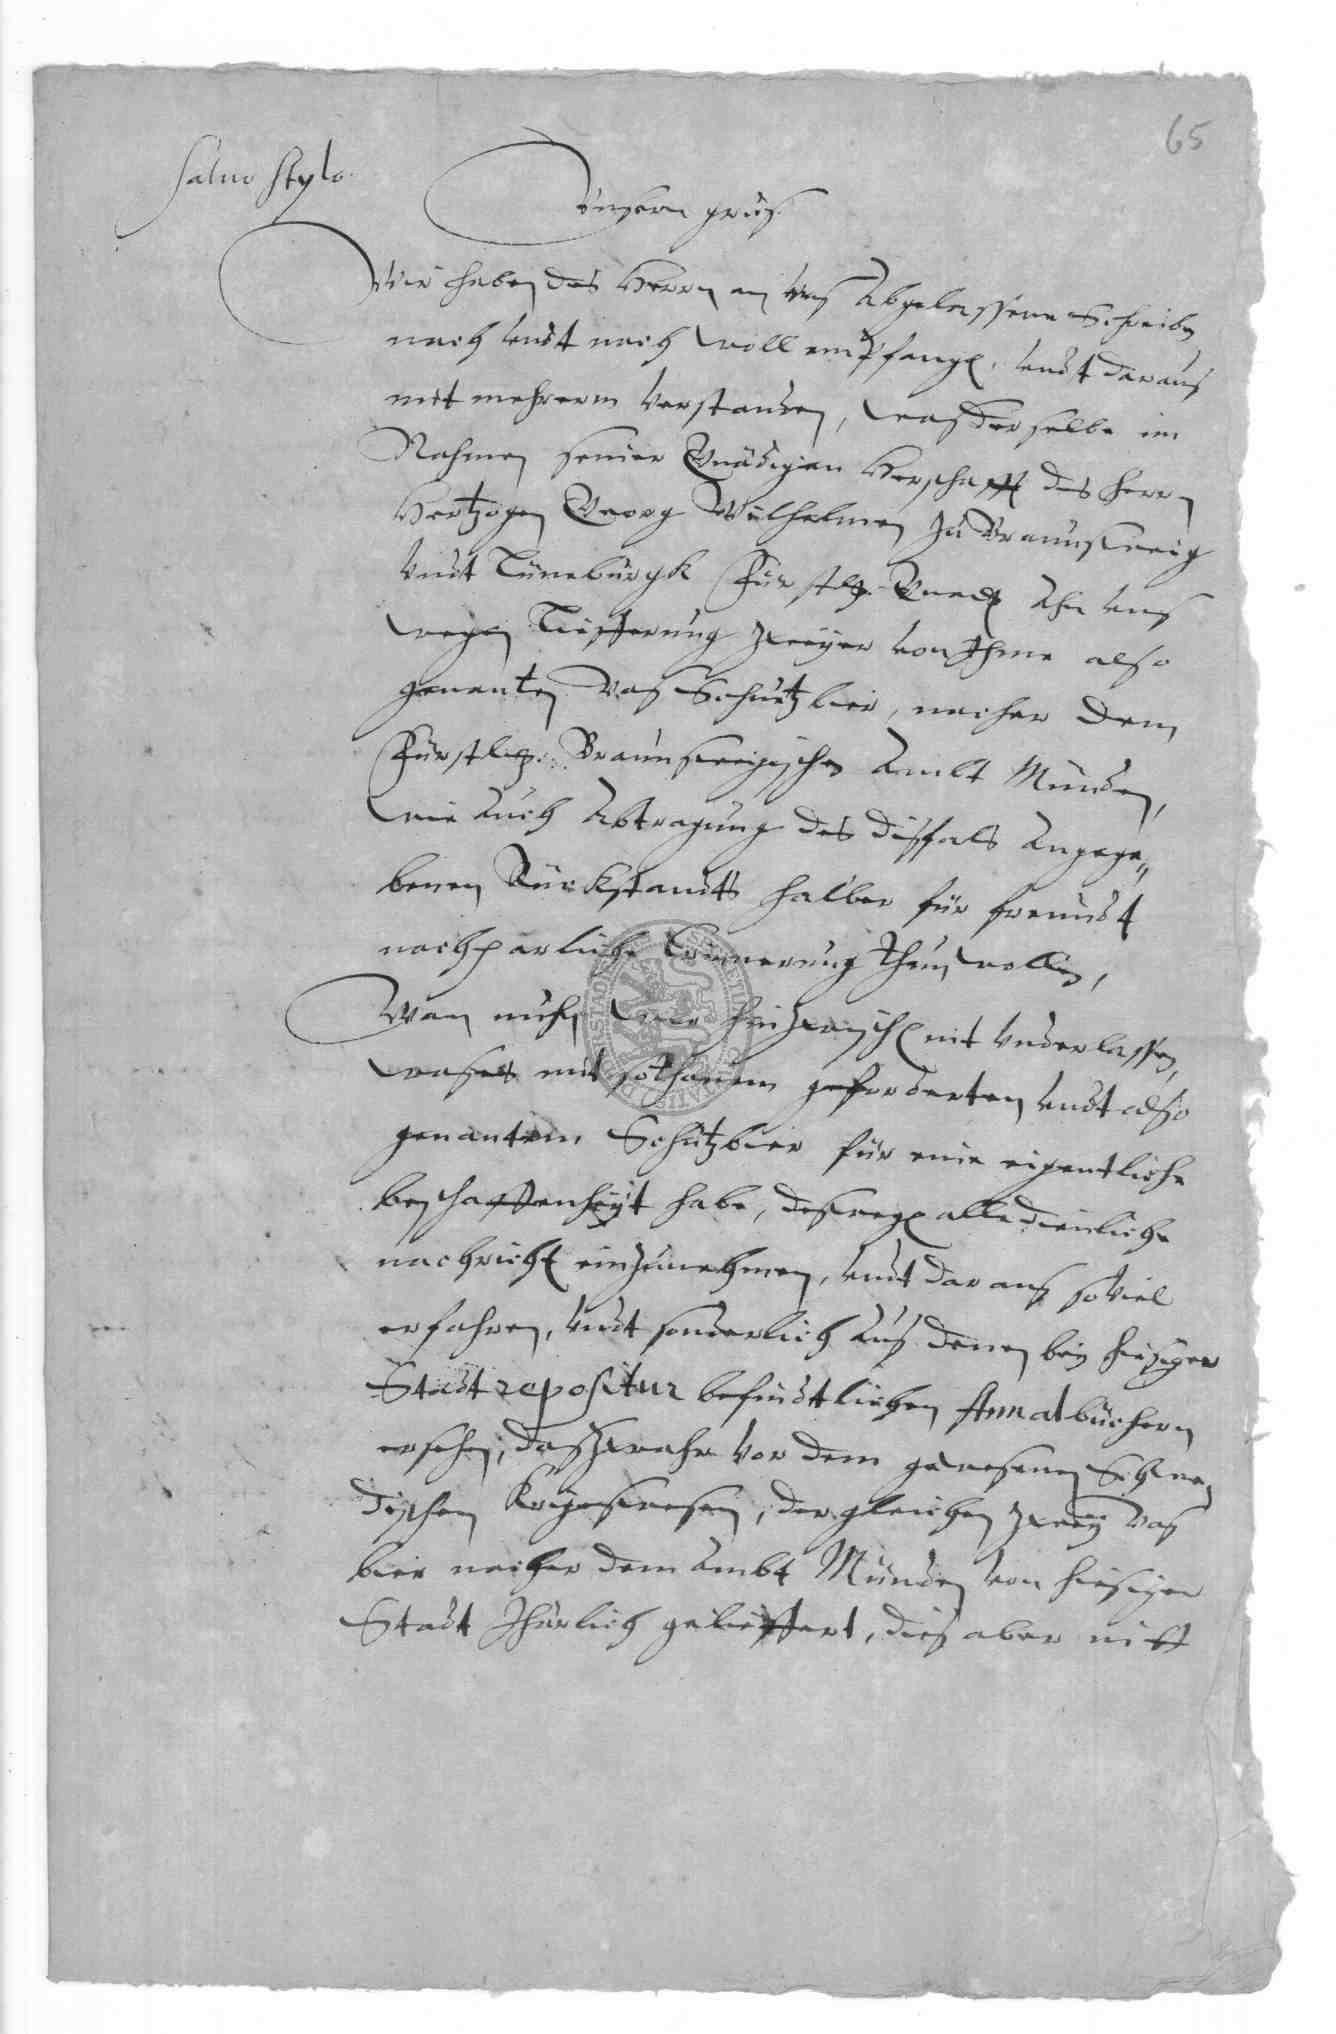 65
salvo stylo
Unsern grus
Wir haben des Herrn an Uns Abgelassene Schreiben
nach undt nach woll empfangen, undt daraus
mit mehrerm Verstanden, was derselbe im
Nahmen seiner Gnädigen Herschafft des Herrn
Hertzogen Georg Wilhelmen zu Braunsweig
Undt Lüneburgk Fürstlr. Gnad Ahn uns
wegen Lieferung zweyer von Ihme also
genanten Vas Schutzbier, nacher dem
Fürstlr. Braunsweigischen Ambt Münden,
wie Auch Abtragung des disfals Angege„
benen Rückstandts halber für freundt
nachparliche Erinnerung thun wollen,
Wan nuhn wir hinzwischen nit Underlassen,
was mit sothanem geforderten undt also
genantem Schutzbier für eine eigentliche
beschaffenheyt habe, deswegen alle dienliche
nachricht einzunehmen, undt daraus so viel
erfahren, Undt sonderlich Aus denen bey hiesiger
Stadt repositur befindtlichen Annalbüchern
ersehen, das zwahr vor dem gewesenen Schwe„
dischen Krigeswesen, dergleichen zwey Vas
bier nacher dem Ambt Münden von hiesiger
Stadt Jhärlich geliefert, dies aber nitt